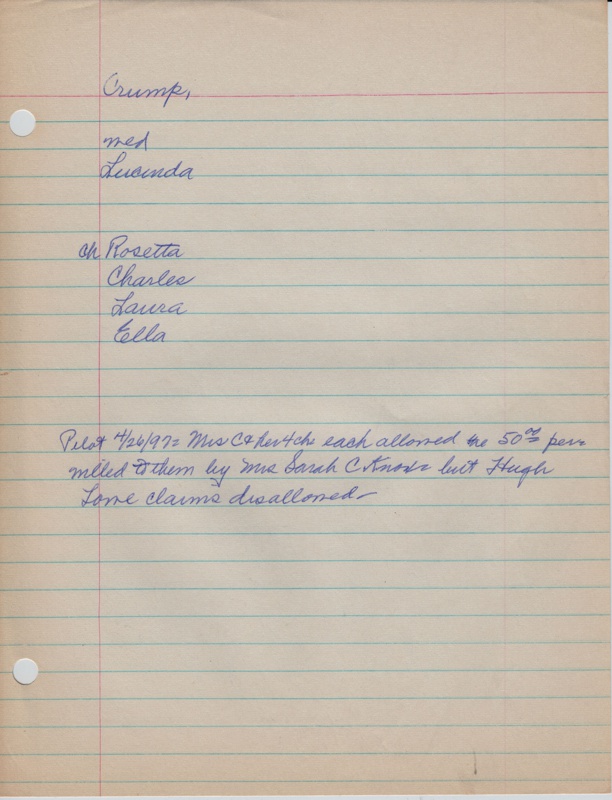 Crump,
med
Lucinda
ch Rosetta
Charles
Laura
Ella
Pilot 4/26/97= Mrs C & her 4 ch each allowed the 50 00 per-
milled to them by Mrs Sarah C Knox= but Hugh
Lowe claims disallowed-